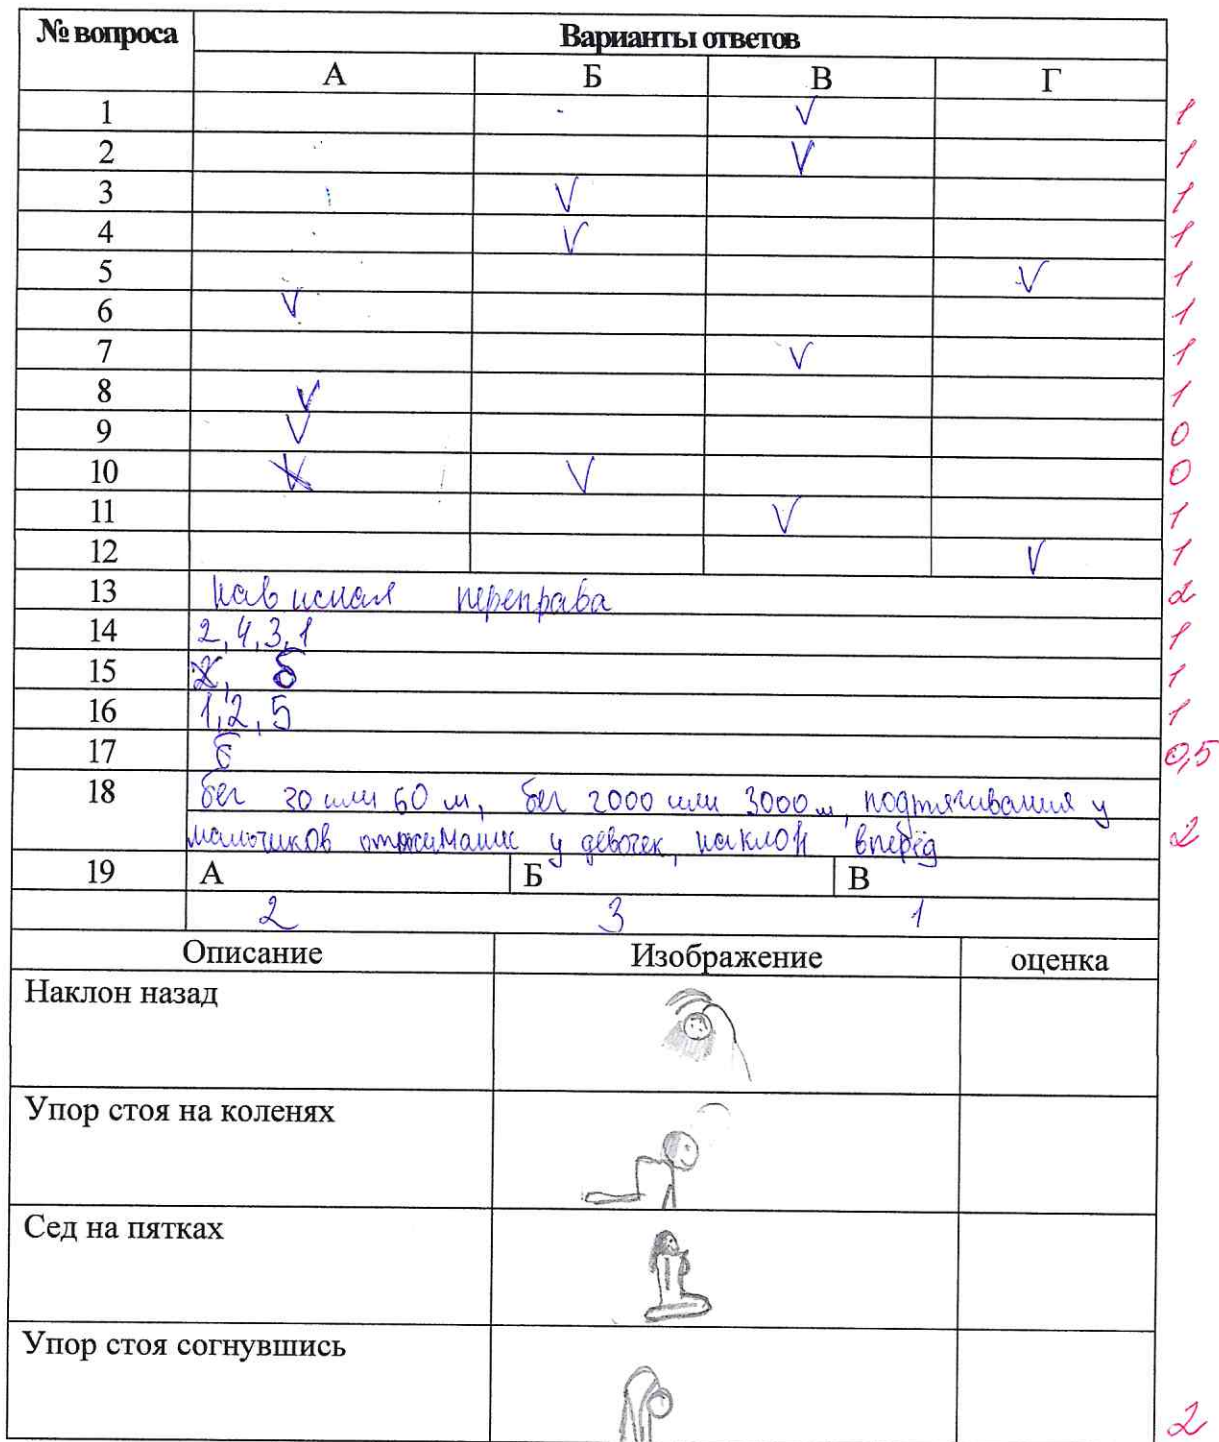 № вопроса Варианты ответов
А Б В Г
1 V 1
2 V 1
3 V 1
4 V 1
5 V 1
6 V 1
7 V 1
8 V 1
9 V 0
10 V 0
11 V 1
12 V 1
13 навесная переправа 2
14 2, 4, 3, 1 1
15 б 1
16 1, 2, 5 1
17 б 0,5
18 бег 30 или 60 м, бег 2000 или 3000 м, подтягивания у
мальчиков отжимание у девочек, наклон вперёд 2
19 А Б В
2 3 1
Описание Изображение оценка
Наклон назад
Упор стоя на коленях
Сед на пятках
Упор стоя согнувшись
2